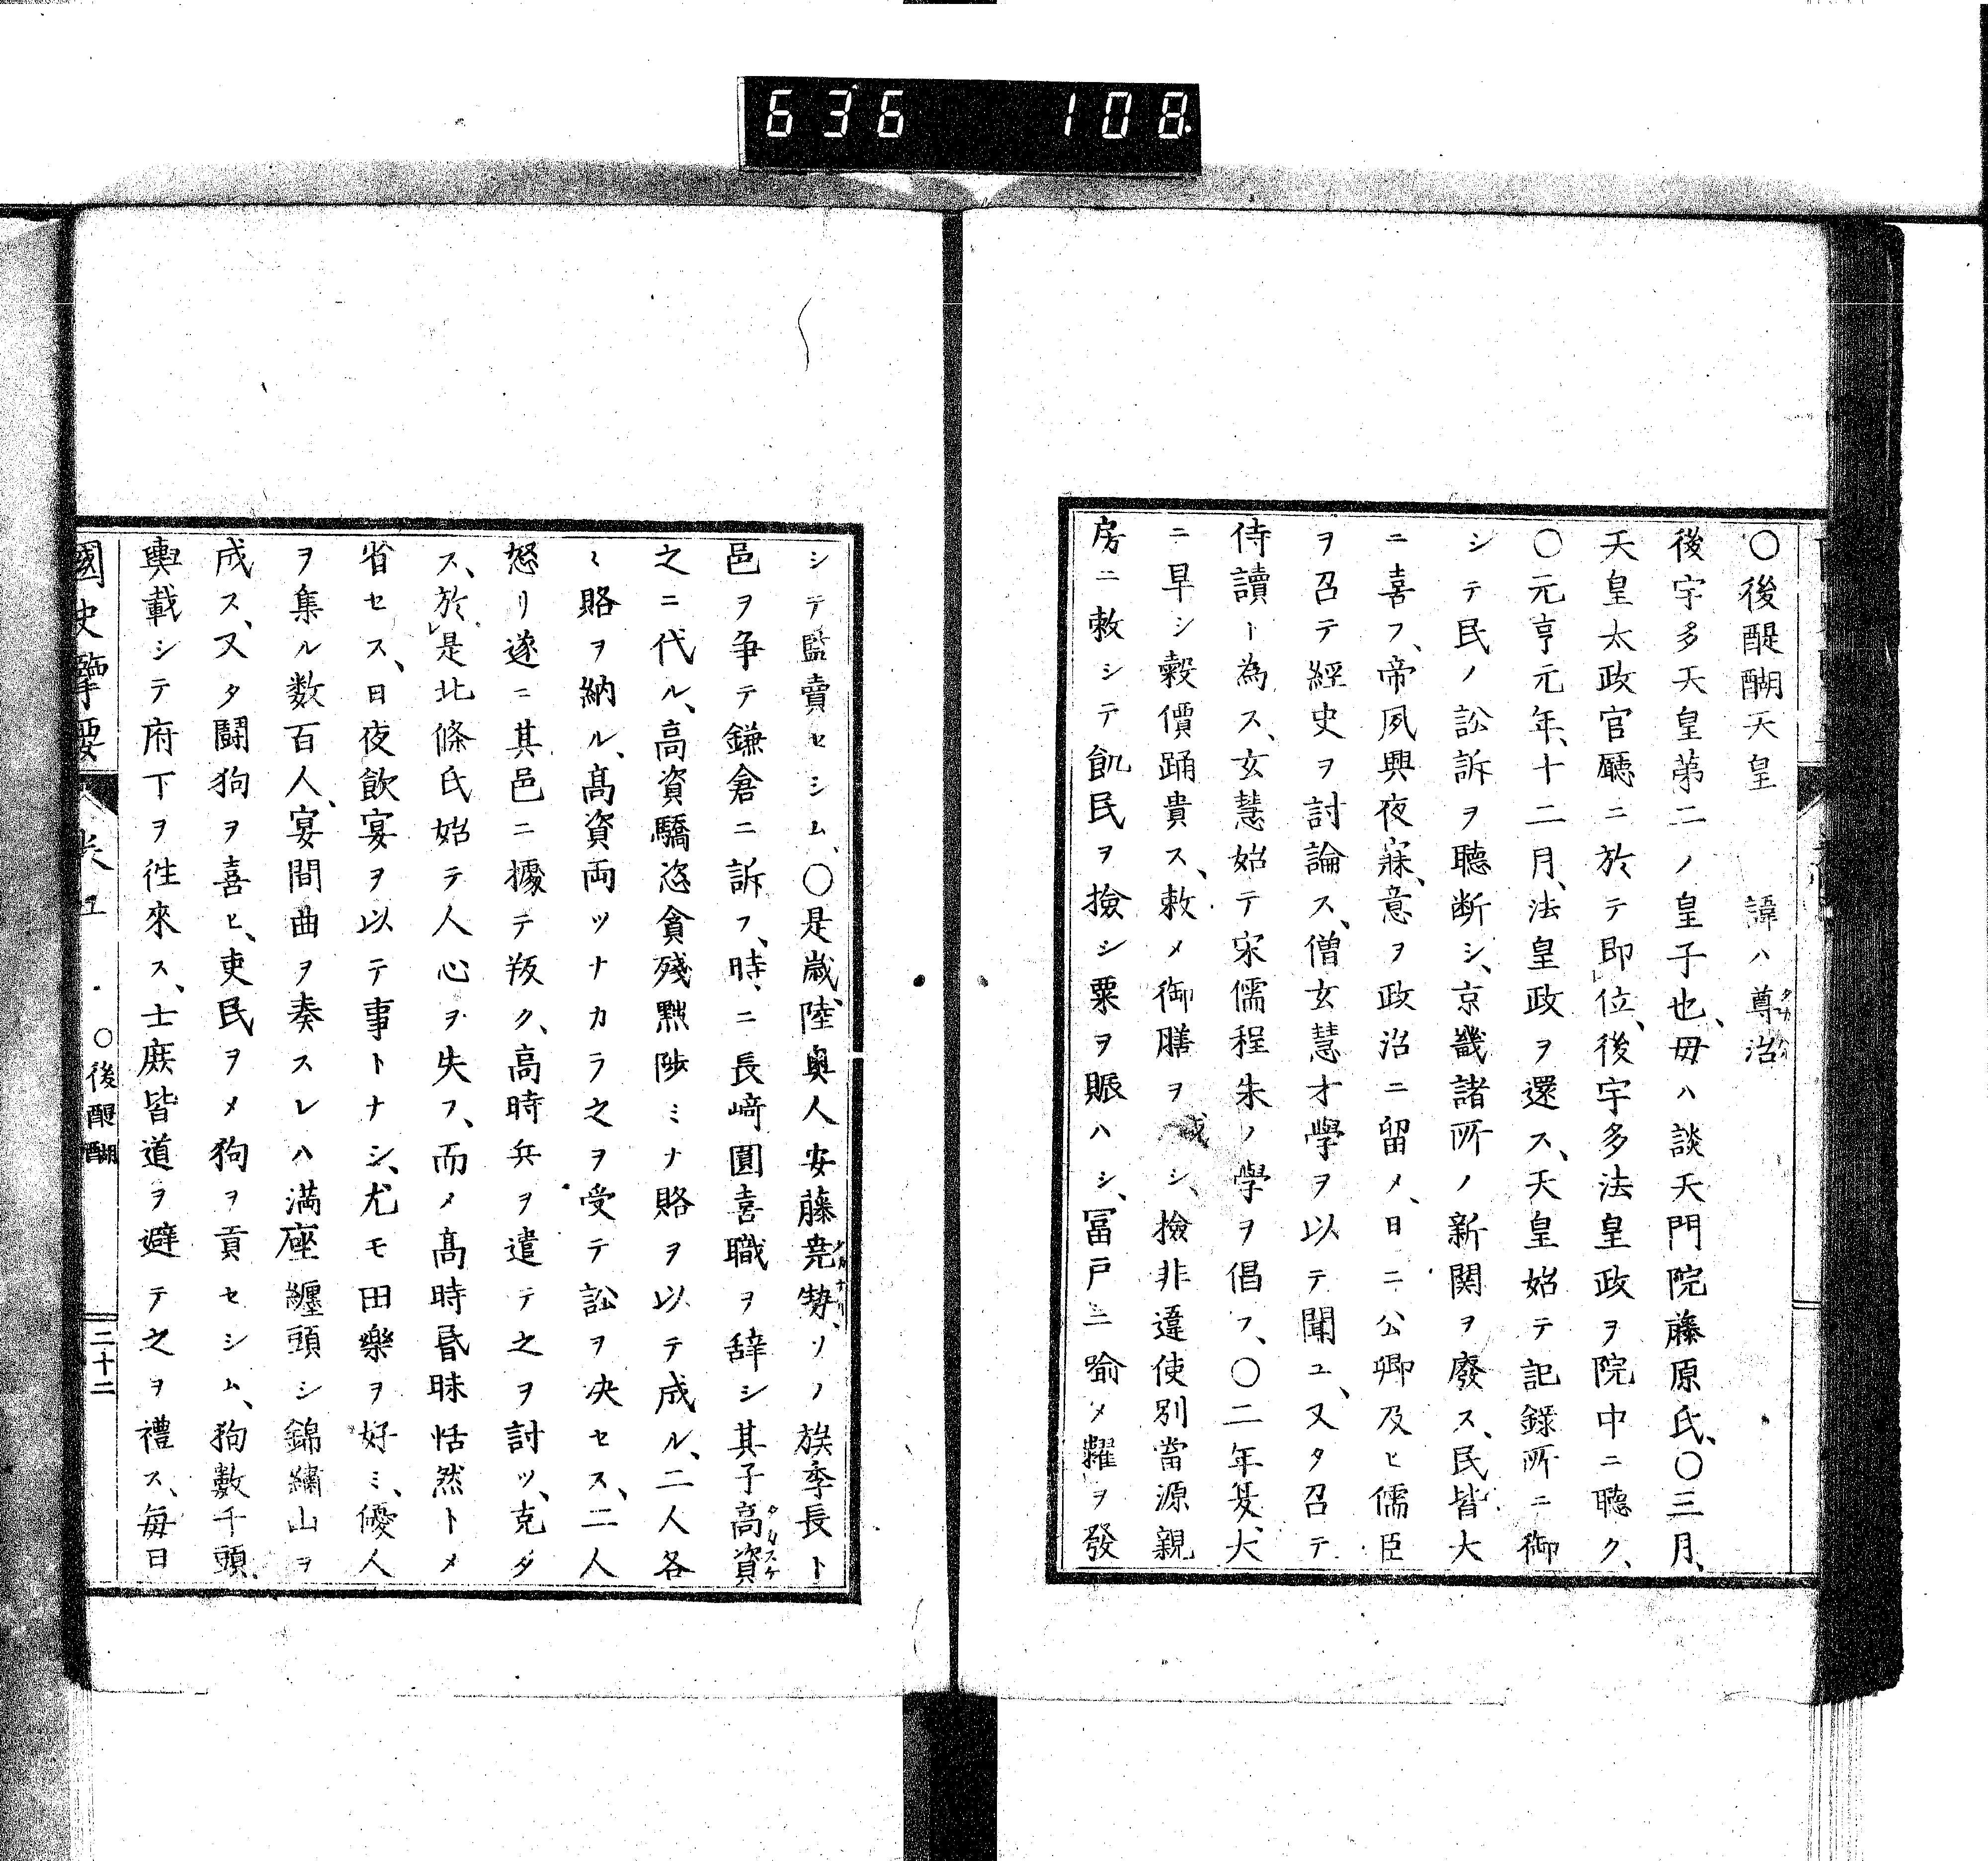 636 108
〇後醍醐天皇 諱ハ尊治
後宇多天皇第二ノ皇子也、毋ハ談天門院藤原氏、〇三月、
天皇太政官廳ニ於テ即位、後宇多法皇政ヲ院中ニ聽ク、
〇元亨元年、十二月、法皇政ヲ還ス、天皇始テ記錄所ニ御
シテ民ノ訟訴ヲ聽断シ、京畿諸所ノ新関ヲ廢ス、民皆大
ニ喜フ、帝夙興夜寐、意ヲ政治ニ留メ、日ニ公卿及ヒ儒臣
ヲ召テ經史ヲ討論ス、僧玄慧才學ヲ以テ聞ユ、又タ召テ
侍讀ト為ス、玄慧始テ宋儒程朱ノ學ヲ倡フ、〇二年夏、大
ニ旱シ穀價踊貴ス、敕メ御膳ヲ减シ、撿非違使別當源親
房ニ敕シテ飢民ヲ撿シ粟ヲ賑ハシ、冨戸ニ喻メ糶ヲ發
シテ監賣セシム、〇是歳、陸奥人安藤尭勢、ソノ族季長ト
邑ヲ争テ鎌倉ニ訴フ、時ニ長﨑圓喜職ヲ辞シ其子高資タカスケ
之ニ代ル、高資驕恣貪殘黜陟ミナ賂ヲ以テ成ル、二人各
〻賂ヲ納ル、髙資両ツナカラ之ヲ受テ訟ヲ决セス、二人
怒リ遂ニ其邑ニ據テ叛ク、高時兵ヲ遣テ之ヲ討ツ、克タ
ス、於是北條氏始テ人心ヲ失フ、而メ髙時昬眛恬然トメ
省セス、日夜飲宴ヲ以テ事トナシ、尤モ田樂ヲ好ミ、優人
ヲ集ル数百人、宴間曲ヲ奏スレハ満座纏頭シ錦繡山ヲ
成ス、又タ闘狗ヲ喜ヒ、吏民ヲメ狗ヲ貢セシム、狗數千頭、
輿載シテ府下ヲ徃來ス、士庶皆道ヲ避テ之ヲ禮ス、毎日
國史擥要 卷五 〇後醍醐 二十二